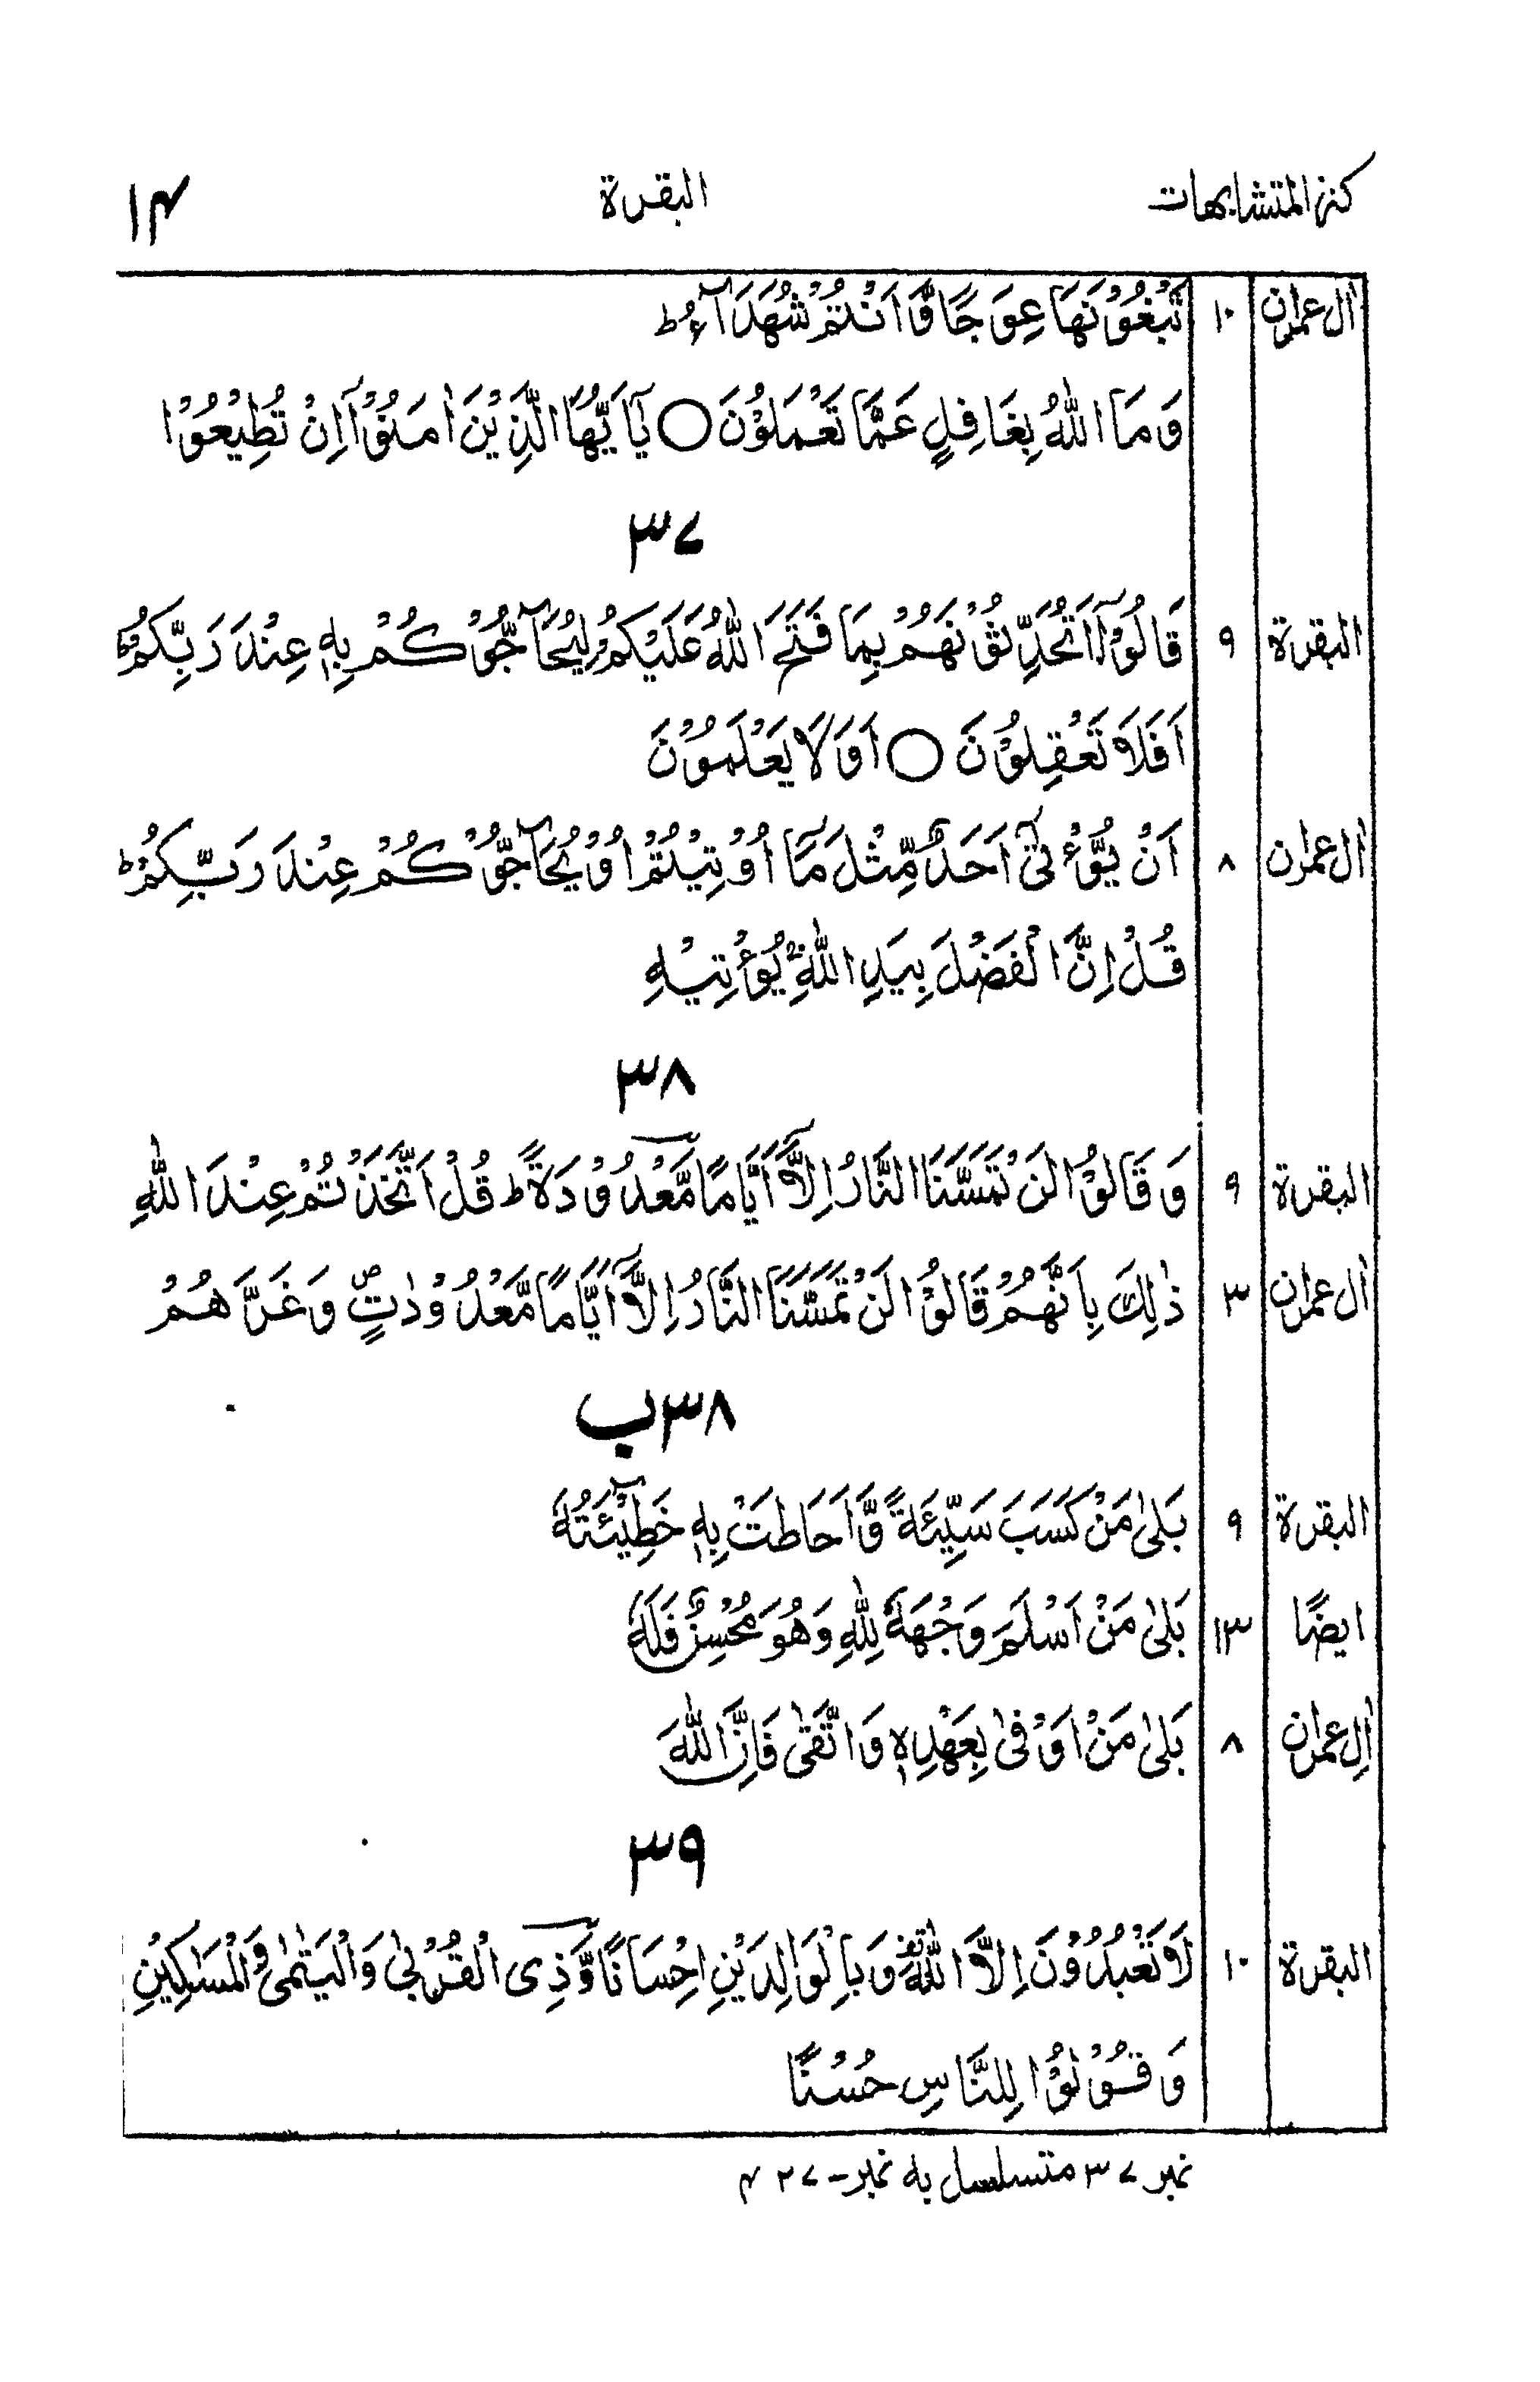 کنز المتشابہات البقرة ۱۴
اٰل عمرٰن ۱۰ تَبْغُوْنَهَا عِوَجًا وَّ اَنْتُمْ شُهَدَآءُ ط
وَمَا اللّٰهُ بِغَافِلٍ عَمَّا تَعْمَلُوْنَ ○ يٰۤاَيُّهَا الَّذِيْنَ اٰمَنُوْۤا اِنْ تُطِيْعُوْا
۳۷
البقرة ۹ قَالُوْۤا اَتُحَدِّثُوْنَهُمْ بِمَا فَتَحَ اللّٰهُ عَلَيْكُمْ لِيُحَآجُّوْكُمْ بِهٖ عِنْدَ رَبِّكُمْ ط
اَفَلَا تَعْقِلُوْنَ ○ اَوَلَا يَعْلَمُوْنَ
اٰل عمرٰن ۸ اَنْ يُّؤْتٰۤى اَحَدٌ مِّثْلَ مَاۤ اُوْتِيْتُمْ اَوْ يُحَآجُّوْكُمْ عِنْدَ رَبِّكُمْ ط
قُلْ اِنَّ الْفَضْلَ بِيَدِ اللّٰهِ ج يُؤْتِيْهِ
۳۸
البقرة ۹ وَقَالُوْا لَنْ تَمَسَّنَا النَّارُ اِلَّاۤ اَيَّامًا مَّعْدُوْدَةً ط قُلْ اَتَّخَذْتُمْ عِنْدَ اللّٰهِ
اٰل عمرٰن ۳ ذٰلِكَ بِاَنَّهُمْ قَالُوْا لَنْ تَمَسَّنَا النَّارُ اِلَّاۤ اَيَّامًا مَّعْدُوْدٰتٍ ص وَغَرَّهُمْ
۳۸ب
البقرة ۹ بَلٰى مَنْ كَسَبَ سَيِّئَةً وَّاَحَاطَتْ بِهٖ خَطِيْٓئَتُهٗ
ایضًا ۱۳ بَلٰى مَنْ اَسْلَمَ وَجْهَهٗ لِلّٰهِ وَهُوَ مُحْسِنٌ فَلَهٗ
اٰلِ عمرٰن ۸ بَلٰى مَنْ اَوْفٰى بِعَهْدِهٖ وَاتَّقٰى فَاِنَّ اللّٰهَ
۳۹
البقرة ۱۰ لَا تَعْبُدُوْنَ اِلَّا اللّٰهَ قف وَبِالْوَالِدَيْنِ اِحْسَانًا وَّذِى الْقُرْبٰى وَالْيَتٰمٰى وَالْمَسٰكِيْنِ
وَقُوْلُوْا لِلنَّاسِ حُسْنًا
نمبر ۳۷ متسلسل بہ نمبر۔ ۴۲۷